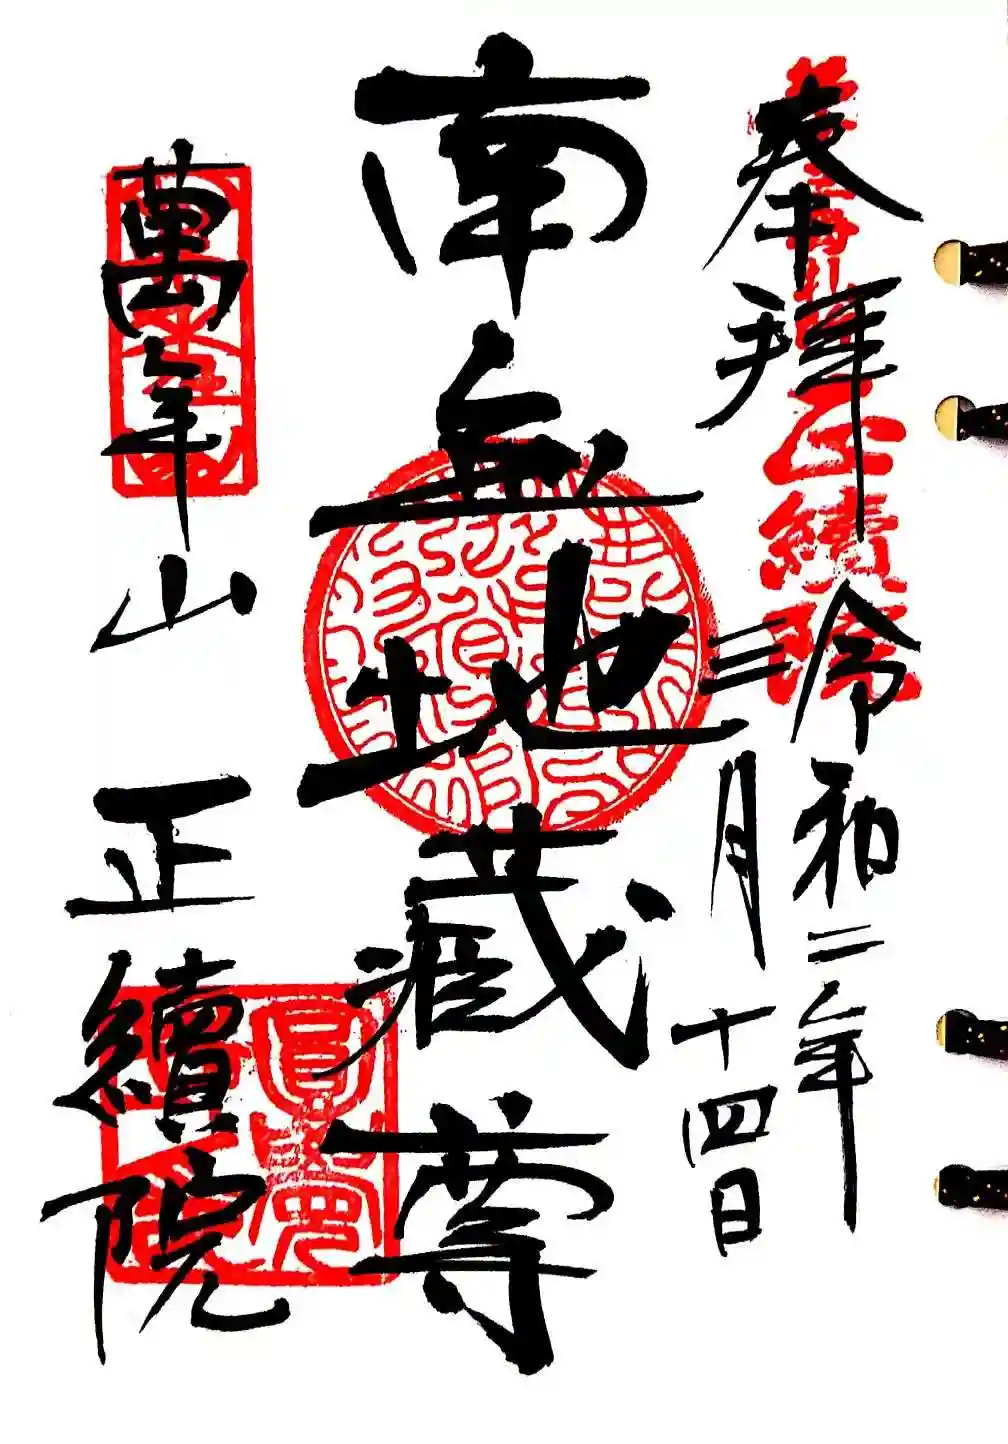 奉拝
令和二年
三月十四日
南無地蔵尊
萬年山
正續院
正續院